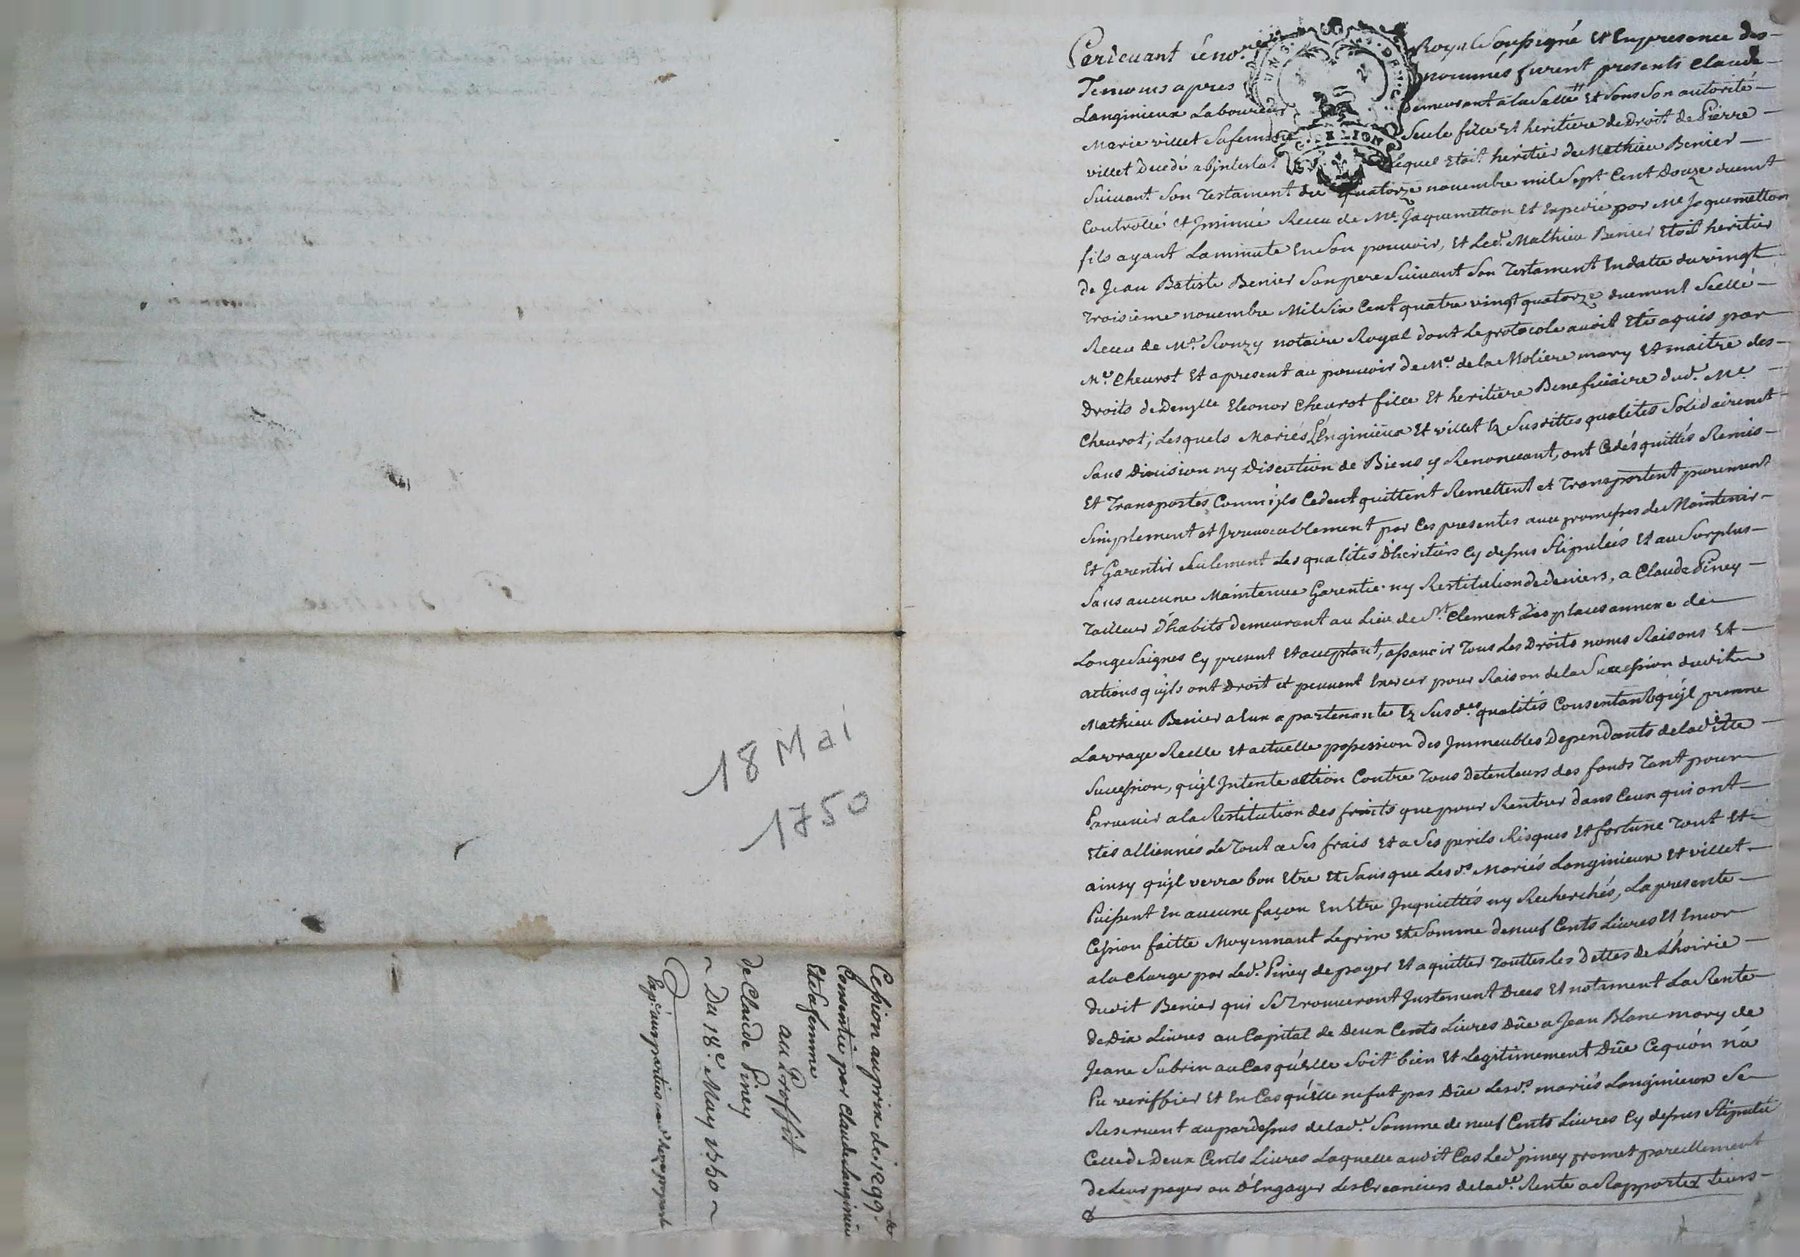 Pardevant le no.re Royal Soussigné Et En presence des
Temoins apres nommés furent presents Claude
Langinieux Laboureur Demeurant a la Salle Et Sous Son autorité
Marie villet Sa femme Seule fille Et heritiere de Droit de Pierre
villet Decedé abjntestat Lequel Etoit heritier de Mathieu Benier
Suivant Son Testament du quatorze novembre mil Sept Cent Douze duemt
Controllé et Jnsinué Receu de Me. Jaquemetton Et Expedié par Me Jaquemetton
fils ayant La minute En Son pouvoir, Et Led. Mathieu Benier Etoit heritier
de Jean Batiste Benier Son pere Suivant Son Testament En datte du vingt
Troisieme novembre Mil Six Cent quatre vingt quatorze duement Scellé
Receu de Me. Ronzy notaire Royal dont Le protocole avoit Eté aquis par
Me. Cheurot Et apresent au pouvoir de Mr. de la Moliere mary Et maitre des
Droits de Demlle Eleonor Cheurot fille Et heritiere Beneficiaire dud. Me.
Cheurot; Lesquels Mariés Lenginieux Et villet Ez Susdittes qualités Solidairemt
Sans Division ny Discution de Biens y Renoncant, ont Cedés quittés Remis
Et Transportés Comm'jls Cedent quittent Remettent et Transportent purement
Simplement et Jrrevocablement par Ces presentes avec promesses de Maintenir
Et Garentir Seulement Les qualités D'heritiers Cy dessus Stipulées Et au Surplus
Sans aucune Maintenue Garentie ny Restitution de deniers, a Claude Piney
Tailleur D'habits demeurant au Lieu de St. Clement Les places annexe de
LongeSaignes Cy present Et acceptant, assavoir Tous Les Droits noms Raisons Et
actions qu'jls ont Droit et peuvent Exercer pour Raison de la Succession dudit
Mathieu Benier a Eux apartenante Ez Susd.es qualités Consentant qu'jl prenne
La vraye Reelle Et actuelle possession des Jmmeubles Dependants de la ditte
Succession, qu'jl Jntente action Contre Tous detenteurs des fonds Tant pour
Parvenir a la Restitution des fruits que pour Rentrer dans Ceux qui ont
Etés alliennés Le Tout a Ses frais Et a Ses perils Risques Et fortune Tout Et
ainsy qu'jl verra bon Etre Et Sans que Lesd.s Mariés Langinieux Et villet
Puissent En aucune façon En Etre Jnquiettés ny Recherchés, La presente
Cession faitte Moyennant Le prix Et Somme de neuf Cents Livres Et Encor
a la charge par Led. Piney de payer Et aquitter Touttes Les Dettes de L'hoirie
dudit Benier qui Se Trouveront Justement Dues Et notament La Rente
de Dix Livres au Capital de Deux Cents Livres Düe a Jean Blanc mary de
Jeane Subrin au Cas qu'Elle Soit bien Et Legitimement Düe Ce qu'on n'a
Pu veriffier Et En Cas qu'Elle ne fut pas Düe Lesd.s mariés Langinieux Se
Reservent au par dessus de lad.e Somme de neuf Cents Livres Cy dessus Stipulée
Celle de Deux Cents Livres Laquelle audit Cas Led. piney promet pareillement
de Leur payer ou D'Engager Les Creanciers de lad.e Rente a Rapporter Leurs
18 Mai
1750
Cession au prix de 1299.
Consentie par Claude Langinieu
Et sa femme
au Proffit
de Claude Piney
Du 18e. May 1750